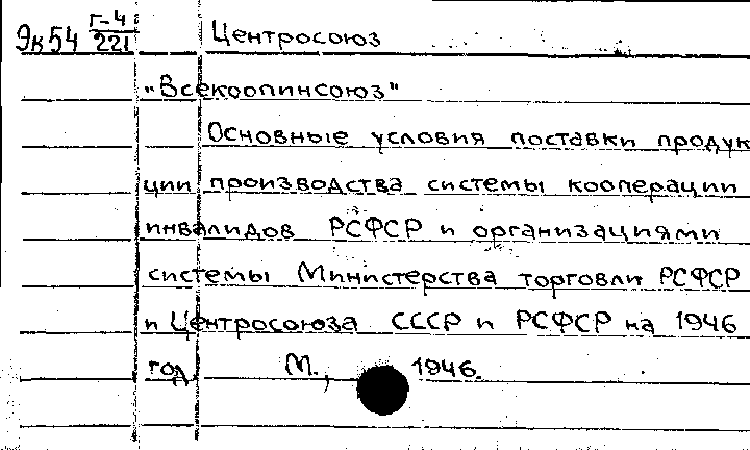 Эк54 Г-4/221 Центросоюз
"Всекоопинсоюз"
Основные условия поставки продук
ции производства системы кооперации
инвалидов РСФСР и организациями
системы Министерства торговли РСФСР
и Центросоюза СССР и РСФСР на 1946
год М., 1946.